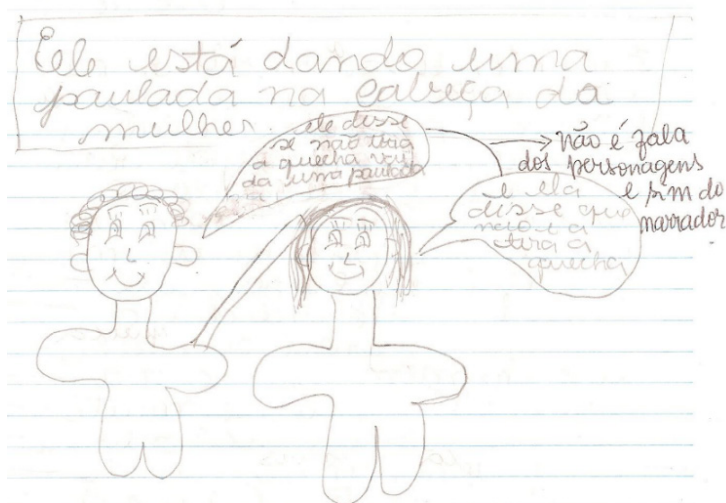 Eele está dando uma
paulada na cabeça da
mulher.
ele disse
se não tira
a queicha vou
da uma paulada
e ela
disse que
não i a
tira a
queicha
não é fala
dos personagens
e sim do
narrador